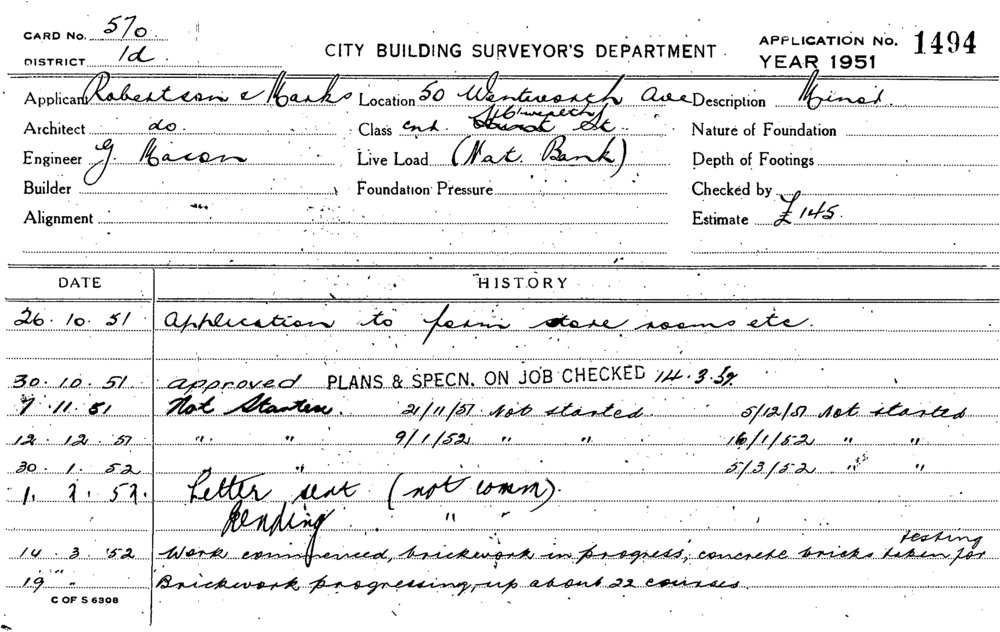 CARD No. 570
DISTRICT 1d
CITY BUILDING SURVEYOR'S DEPARTMENT
APPLICATION No. 1494
YEAR 1951
Applicant Robertson & Marks Location 50 Wentworth Ave Description Minor
Architect do. Class cnr. St. Nature of Foundation
Engineer G. Macon Live Load (Nat. Bank) Depth of Footings
Builder Foundation Pressure Checked by
Alignment Estimate £145.
DATE HISTORY
26. 10. 51 Application to form store rooms etc.
30. 10. 51 approved PLANS & SPECN. ON JOB CHECKED 14.3.52.
7. 11. 51 Not Started. 21/11/51 Not started. 5/12/51 Not started
12. 12. 51 " " 9/1/52 " " 16/1/52 " "
30. 1. 52 " 5/3/52 " "
1. 2. 52. Letter sent (not comm).
Pending " "
testing
14. 3. 52 Work commenced, brickwork in progress, concrete bricks taken for
19 " Brickwork progressing, up about 22 courses.
C OF S 6308